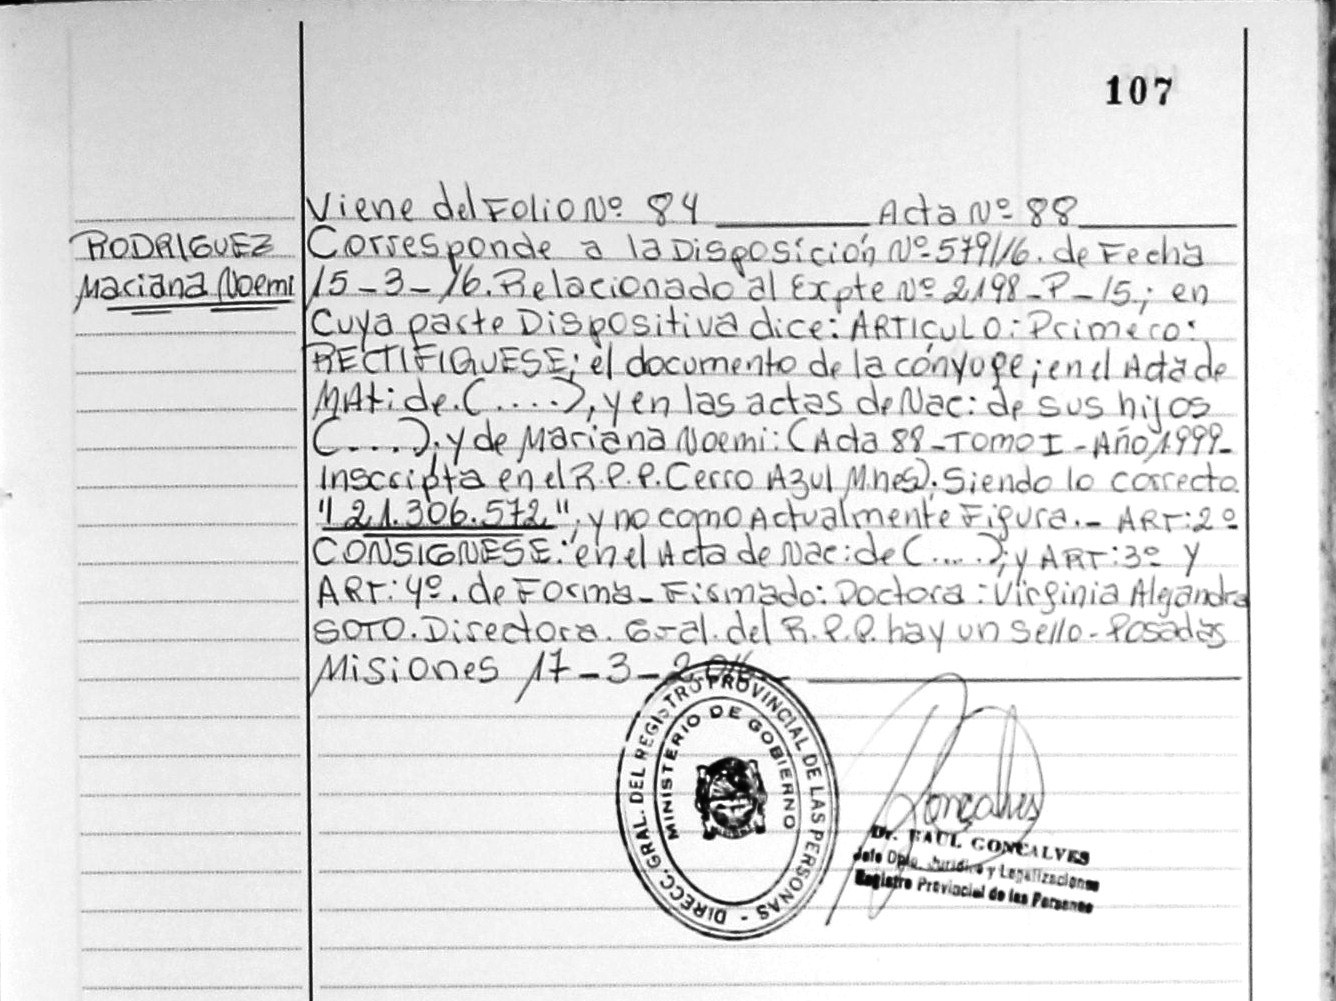 107
Viene del Folio Nº 84 Acta Nº 88
RODRIGUEZ
Mariana Noemi
Corresponde a la Disposición Nº 579/16. de Fecha
15-3-16. Relacionado al Expte Nº 2198-P-15; en
Cuya parte Dispositiva dice: ARTICULO: Primero:
RECTIFIGUESE; el documento de la cónyuge; en el Acta de
MAt: de. (....), y en las actas de Nac: de sus hijos
(....); y de Mariana Noemi: (Acta 88-TOMO I - Año 1999-
Inscripta en el R.P.P. Cerro Azul Mnes). Siendo lo correcto
"21.306.572", y no como Actualmente Figura.- ART: 2º
CONSIGNESE: en el Acta de Nac: de (....); y ART: 3º y
ART: 4º. de Forma- Firmado: Doctora: Virginia Alejandra
SOTO. Directora. G-al. del R.P.P. hay un sello- Posadas
Misiones 17-3-2016-
DIRECC. GRAL. DEL REGISTRO PROVINCIAL DE LAS PERSONAS -
MINISTERIO DE GOBIERNO
Goncalves
Dr. RAUL GONCALVES
Jefe Dpto. Jurídico y Legalizaciones
Registro Provincial de las Personas